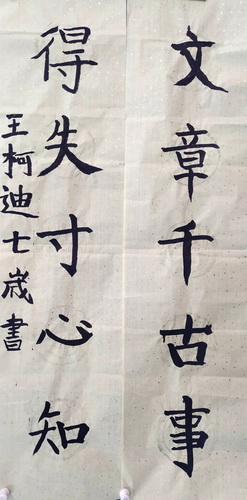 文章千古事
得失寸心知
王柯迪七岁書